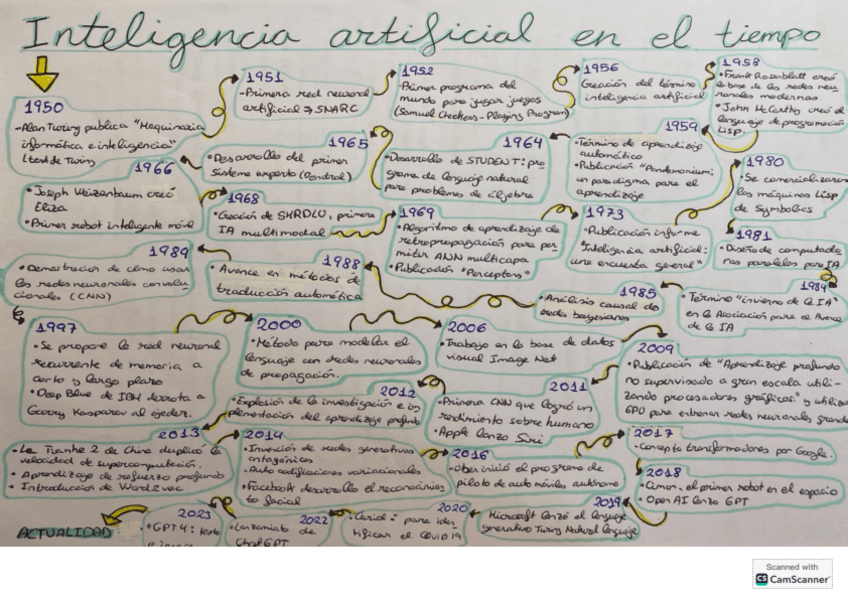 Inteligencia artificial en el tiempo
1950
-Alan Turing publica "Maquinaria
informática e inteligencia"
(test de Turing
1951
-Primera red neuronal
artificial → SNARC
1952
-Primer programa del
mundo para jugar juegos
(Samuel Checkers-Playing Program)
1956
Creación del término
inteligencia artificial
1958
•Frank Rosenblatt creó
la base de las redes neu
ronales modernas
•John McCarthy creó el
lenguaje de programación
Lisp.
1959
•Término de aprendizaje
automático
•Publicación "Pandemonium:
un paradigma para el
aprendizaje
1964
•Desarrollo de STUDENT: pro
grama de lenguaje natural
para problemas de álgebra
1965
•Desarrollo del primer
Sistema experto (Dendral)
1966
•Joseph Weizenbaum creó
Eliza
•Primer robot inteligente móvil
1968
•Creación de SHRDLU, primera
IA multimodal
1969
•Algoritmo de aprendizaje de
retropropagación para per
mitir ANN multicapa
•Publicación "Perceptons"
1973
•Publicación informe
"Inteligencia artificial:
una encuesta general"
1980
•Se comercializaron
las máquinas Lisp
de Symbolics
1981
•Diseño de computado
res paralelos para IA
1984
•Término "invierno de la IA"
en la Asociación para el Avance
de la IA
1985
•Análisis causal de
redes bayesianas
1988
•Avance en métodos de
traducción automática
1989
•Demostración de cómo usar
las redes neuronales convolu
cionales (CNN)
1997
•Se propone la red neuronal
recurrente de memoria a
corto y largo plazo
•Deep Blue de IBM derrota a
Garry Kasparov al ajedrez.
2000
•Método para modelar el
lenguaje con redes neuronales
de propagación.
2006
•Trabajo en la base de datos
visual Image Net
2009
•Publicación de "Aprendizaje profundo
no supervisado a gran escala utili-
zando procesadores gráficos" y utilizar
GPU para entrenar redes neuronales grandes
2011
•Primera CNN que logró un
rendimiento sobre humano
•Apple lanzo Siri
2012
•Explosión de la investigación e im
plementación del aprendizaje profundo
2013
•La Tianhe 2 de China duplicó la
velocidad de supercomputación.
•Aprendizaje de refuerzo profundo
•Introducción de Word2vec
2014
•Invención de redes generativas
antagónicas
•Auto codificaciones variacionales
•Facebook desarrollo el reconocimien
to facial
2016
•Uber inició el programa de
piloto de automóviles autónomo
2017
•Concepto transformadores por Google.
2018
•Cimon, el primer robot en el espacio
•Open AI lanzo GPT
2019
Microsoft lanzó el lenguaje
generativo Turing Natural Language
2020
"para iden
tificar el COVID 19
2022
•Lanzamiento de
Chat GPT
2023
•GPT 4:
ACTUALIDAD
Scanned with
CS CamScanner